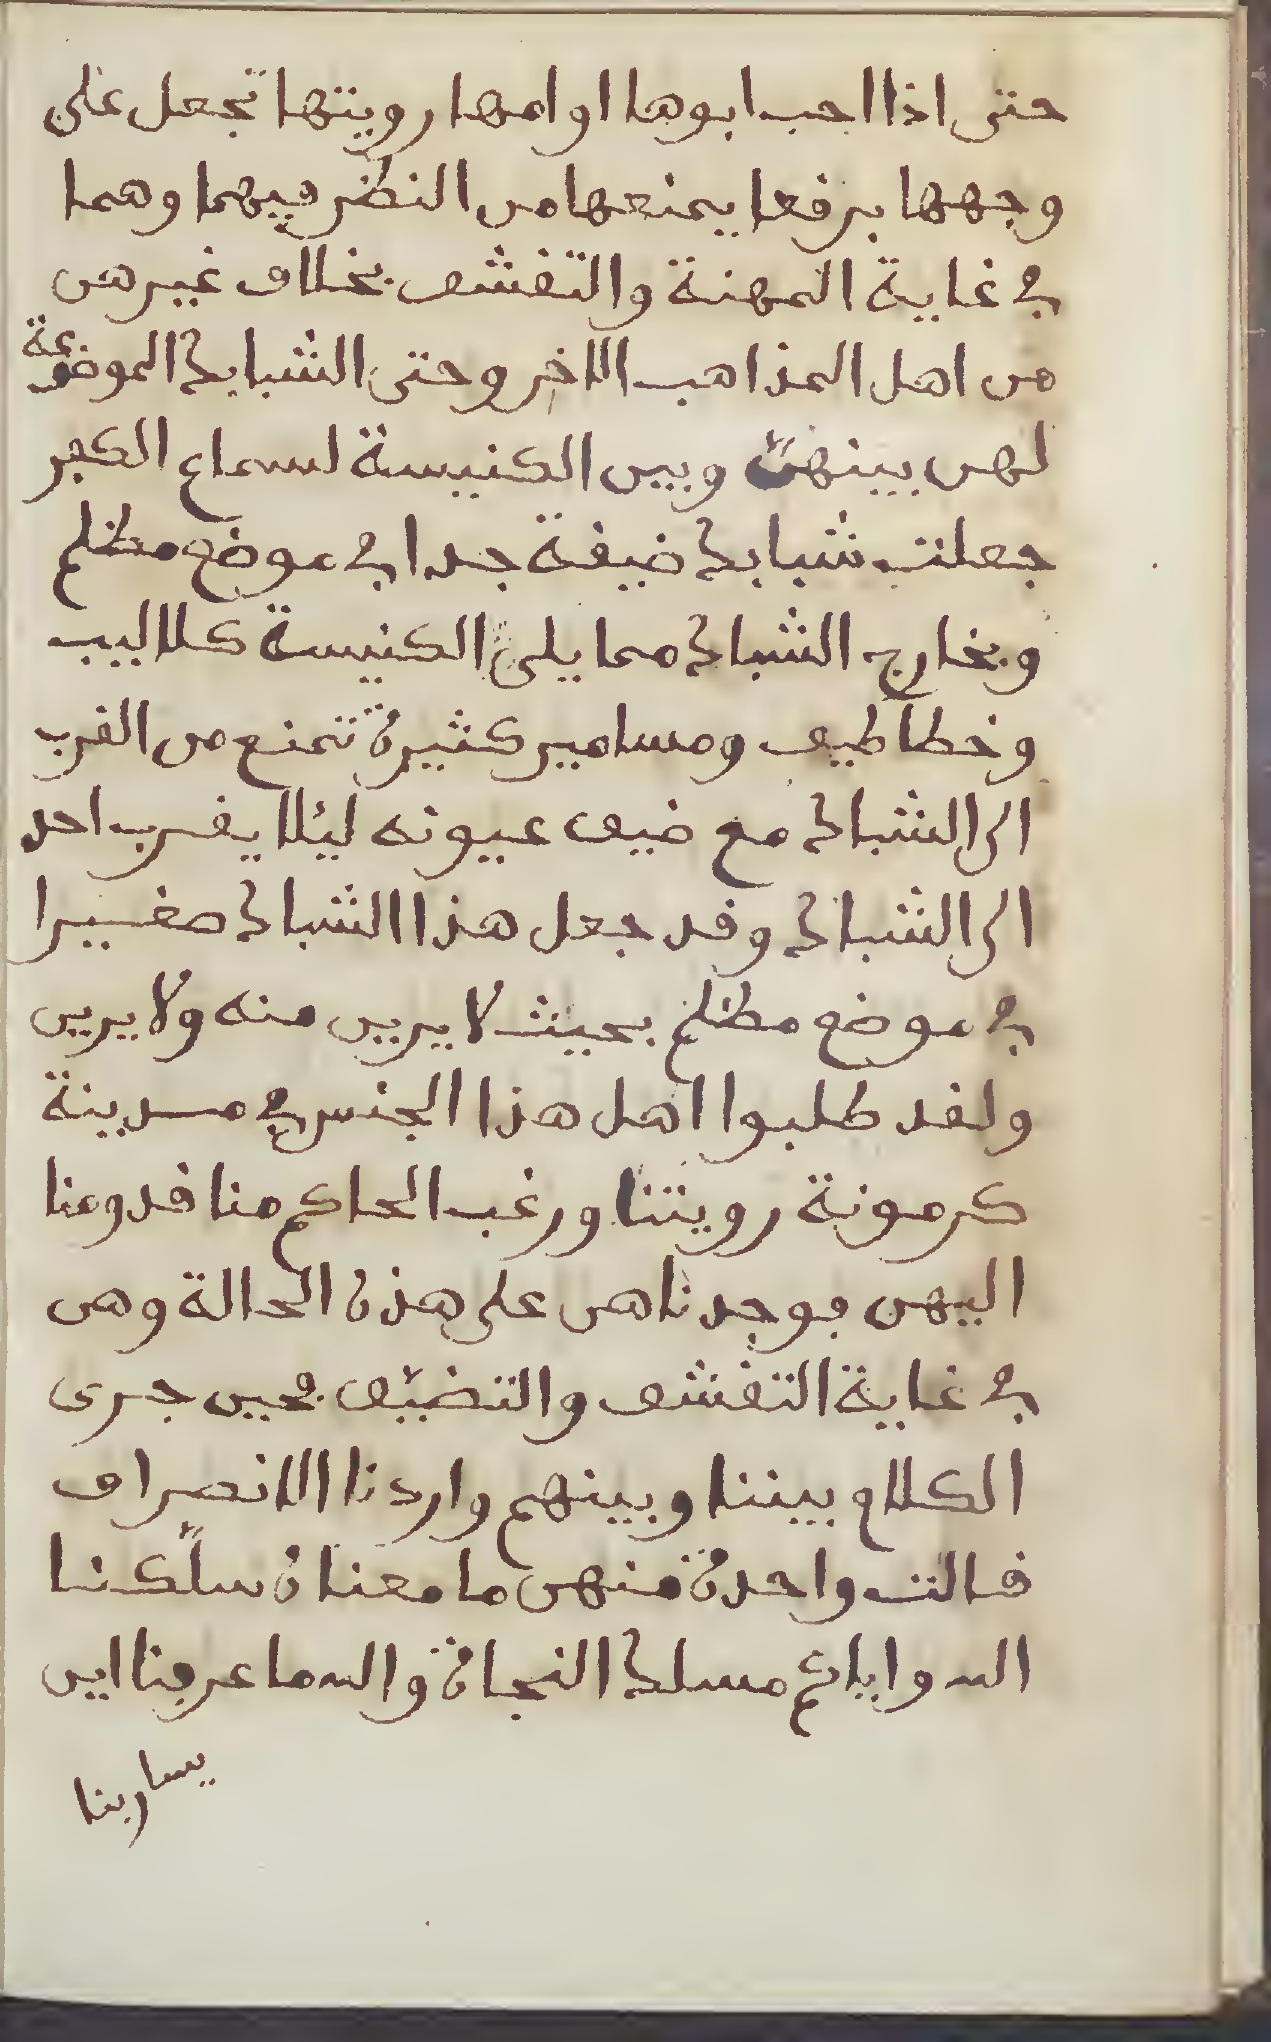 حتى اذا احب ابوها او امها رويتها تجعل على
وجهها برقعا يمنعها من النظر فيهما وهما
في غاية المهنة والتقشف بخلاف غيرهن
من اهل المذاهب الاخر وحتى الشبابك الموضوعة
لهن بينهنّ وبين الكنيسة لسماع الكفر
جعلت شبابك ضيقة جدا في موضع مظلم
وبخارج الشباك مما يلي الكنيسة كلاليب
وخطاطيف ومسامير كثيرة تمنع من القرب
الى الشباك مع ضيق عيونه ليئلا يقرب احد
الى الشباك وقد جعل هذا الشباك صغيرا
في موضع مظلم بحيث لا يرين منه ولا يرين
ولقد طلبوا اهل هذا الجنس في مدينة
كرمونة رويتنا ورغب الحاكم منا قدومنا
اليهن فوجدناهن على هذه الحالة وهن
في غاية التقشف والتضيّق فحين جرى
الكلام بيننا وبينهم واردنا الانصراف
قالت واحدة منهن ما معناه سلّكنا
الله واياكم مسلك النجاة والله ما عرفنا اين
يسار بنا